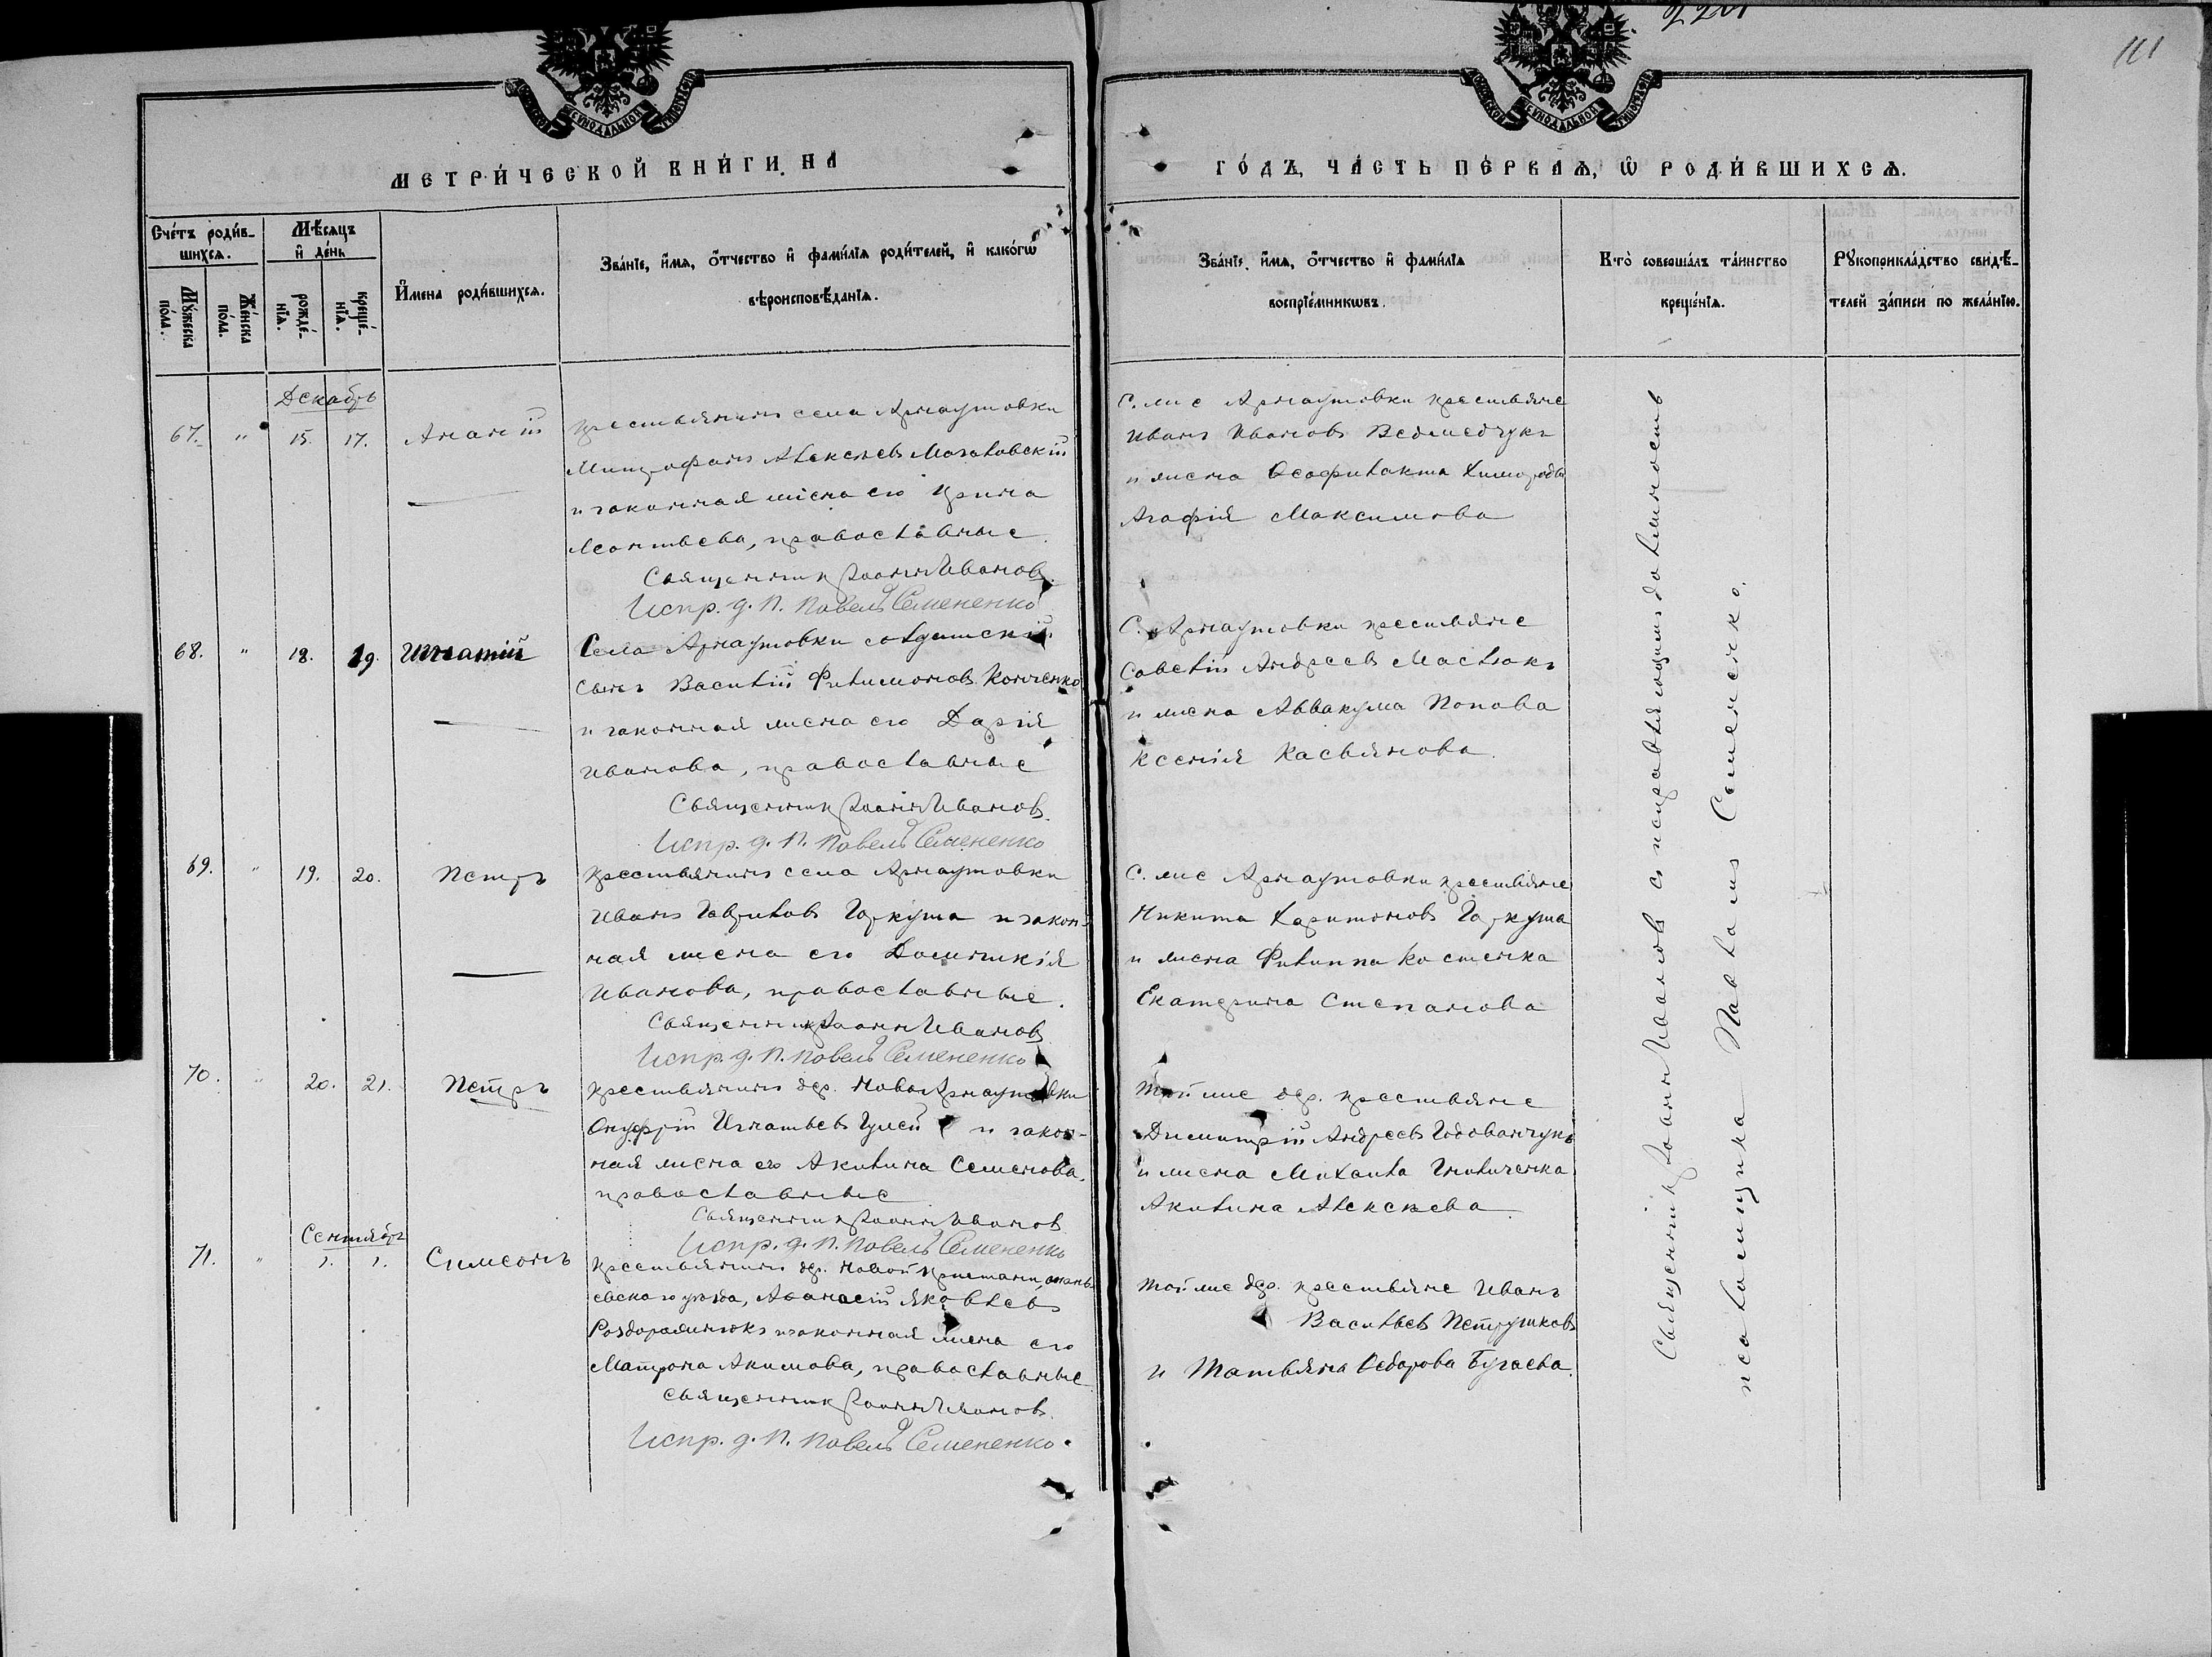 111
МЕТРИ́ЧЕСКОЙ КНИ́ГИ НА
ГО́ДЪ, ЧА́СТЬ ПЕ́РВАѦ, Ѡ РОДИ́ВШИХСѦ.
Сче́тъ роди́в-
шихсѧ.
Мѣ́сяцъ
и де́нь
Мꙋ́жеска
по́ла.
Же́нска
по́ла.
рожде́-
нїѧ.
креще́-
нїѧ.
И҆мена роди́вшихсѧ.
Зва́нїе, и҆́мѧ, ѻ҆́тчество и҆ фами́лїѧ роди́телей, и҆ како́гѡ
вѣроисповѣ́данїѧ.
Зва́нїе, и҆́мѧ, ѻ҆́тчество и҆ фами́лїѧ
воспрїе́мникѡвъ.
Кто̀ соверша́лъ та́инство
креще́нїѧ.
Рꙋкоприкла́дство свидѣ́-
телей за́писи по жела́нїю.
Декабрь
67. " 15. 17. Ананій
крестьянинъ села Арнаутовки
Митрофанъ Алексѣевъ
и законная жена его Ирина
Леонтьева, православные.
Священникъ Іоаннъ Ивановъ.
Испр. д. п. Павелъ Семененко
С. же Арнаутовки крестьяне
Иванъ Ивановъ Ведмедчукъ
и жена Ѳеофилакта
Агафія Максимова
68. " 18. 19. Игнатій
Села Арнаутовки солдатскій
сынъ Василій Филимоновъ Конченко
и законная жена его Дарія
Иванова, православные
Священникъ Іоаннъ Ивановъ.
Испр. д. п. Павелъ Семененко
С. Арнаутовки крестьяне
Савелій Андреевъ Маслюкъ
и жена Аввакума Попова
Ксенія Касьянова.
69. " 19. 20. Петръ
крестьянинъ села Арнаутовки
Иванъ Гавриловъ Гаркуша и закон-
ная жена его Домникія
Иванова, православные.
Священникъ Іоаннъ Ивановъ
Испр. д. п. Павелъ Семененко
С. же Арнаутовки крестьяне
Никита Харитоновъ Гаркуша
и жена Филиппа Костенка
Екатерина Степанова
70. " 20. 21. Петръ
крестьянинъ дер. Ново Арнаутовки
Онуфрій Игнатьевъ и закон-
ная жена его Акилина Семенова,
православные
Священникъ Іоаннъ Ивановъ
Испр. д. п. Павелъ Семененко
Той же дер. крестьяне
Димитрій Андреевъ Годованчукъ
и жена Михаила
Акилина Алексѣева.
Сентябрь
71. " 1. 1. Симеонъ
крестьянинъ дер. Новой Пристани, анань-
евскаго уѣзда, Аѳанасій Яковлевъ
и законная жена его
Матрона Акимова, православные
Священникъ Іоаннъ Ивановъ.
Испр. д. п. Павелъ Семененко.
Той же дер. крестьяне Иванъ
Васильевъ Петрушковъ
и Татьяна Ѳедорова Бугаева.
Священникъ Іоаннъ Ивановъ съ исправляющимъ должность
псаломщика Павломъ Семененко.